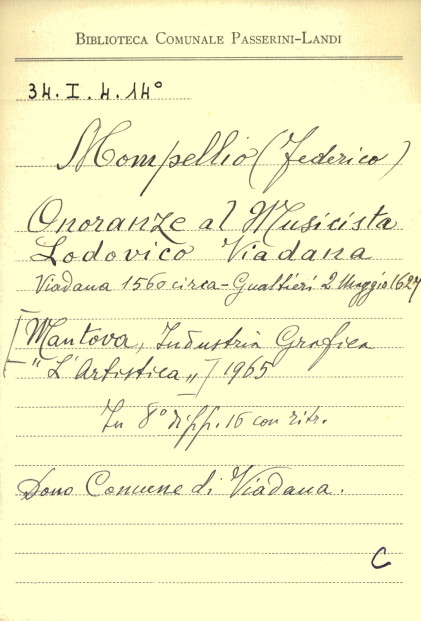 BIBLIOTECA COMUNALE PASSERINI-LANDI
34.I.4.14°
Mompellio (Federico)
Onoranze al Musicista
Lodovico Viadana
Viadana 1560 circa - Gualtieri 2 Maggio 1627
[Mantova, Industria Grafica
"L'Artistica"] 1965
In 8° di pp. 16 con ritr.
Dono Comune di Viadana.
C